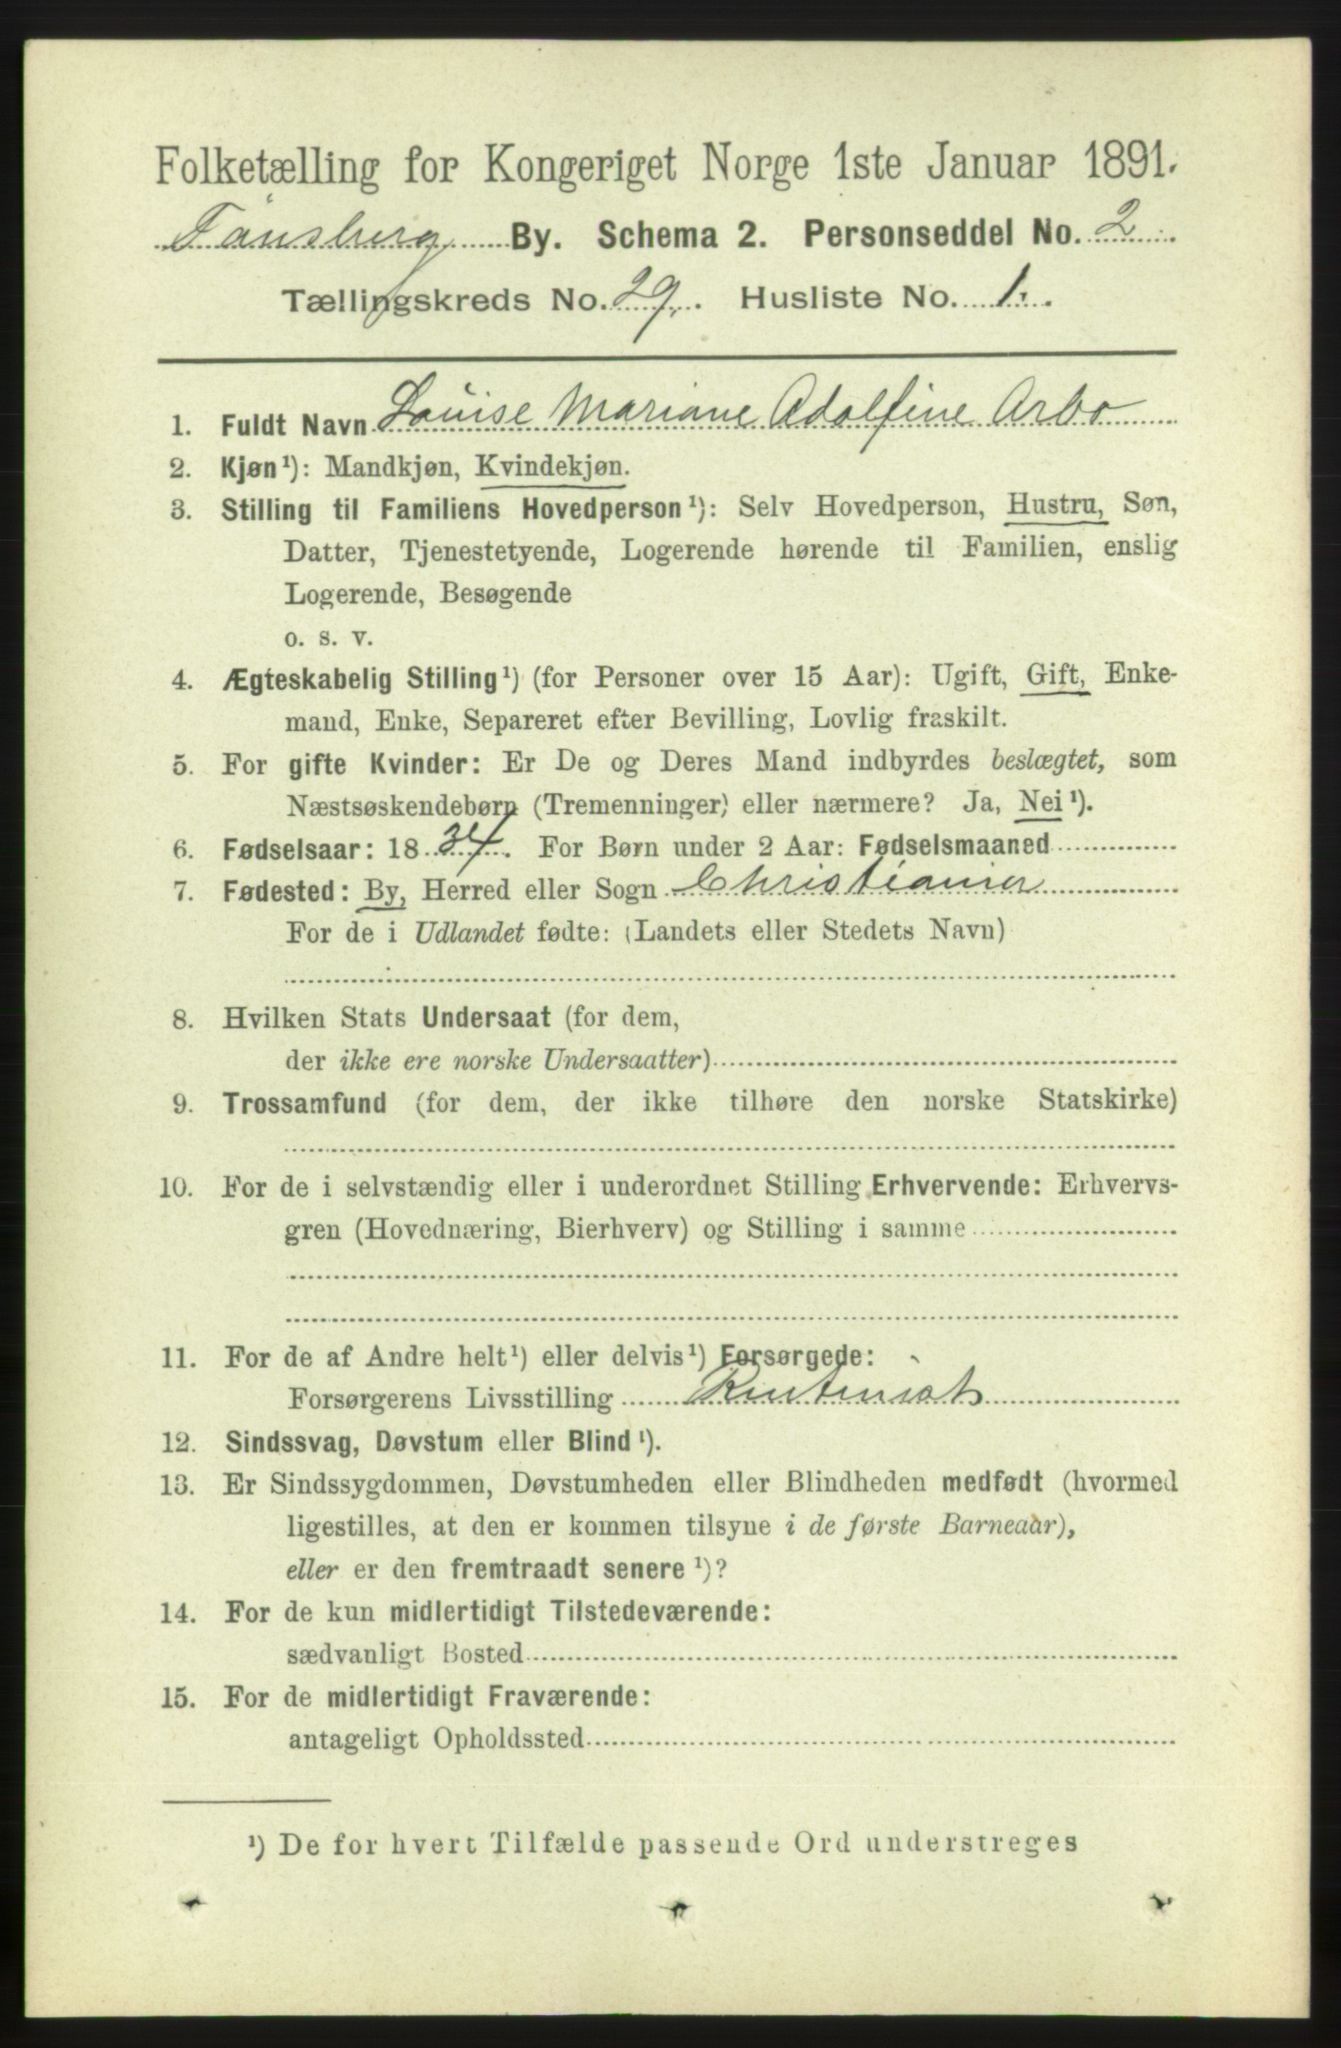 Folketælling for Kongeriget Norge 1ste Januar 1891.
Tønsberg By. Schema 2. Personseddel No. 2
Tællingskreds No. 29. Husliste No. 1.
1. Fuldt Navn Louise Mariane Adolfine Arbo
2. Kjøn¹): Mandkjøn, Kvindekjøn.
3. Stilling til Familiens Hovedperson¹): Selv Hovedperson, Hustru, Søn,
Datter, Tjenestetyende, Logerende hørende til Familien, enslig
Logerende, Besøgende
o. s. v.
4. Ægteskabelig Stilling¹) (for Personer over 15 Aar): Ugift, Gift, Enke-
mand, Enke, Separeret efter Bevilling, Lovlig fraskilt.
5. For gifte Kvinder: Er De og Deres Mand indbyrdes beslægtet, som
Næstsøskendebørn (Tremenninger) eller nærmere? Ja, Nei¹).
6. Fødselsaar: 1834. For Børn under 2 Aar: Fødselsmaaned
7. Fødested: By, Herred eller Sogn Christiania
For de i Udlandet fødte: (Landets eller Stedets Navn)
8. Hvilken Stats Undersaat (for dem,
der ikke ere norske Undersaatter)
9. Trossamfund (for dem, der ikke tilhøre den norske Statskirke)
10. For de i selvstændig eller i underordnet Stilling Erhvervende: Erhvervs-
gren (Hovednæring, Bierhverv) og Stilling i samme
11. For de af Andre helt¹) eller delvis¹) Forsørgede:
Forsørgerens Livsstilling Rentenist
12. Sindssvag, Døvstum eller Blind¹).
13. Er Sindssygdommen, Døvstumheden eller Blindheden medfødt (hvormed
ligestilles, at den er kommen tilsyne i de første Barneaar),
eller er den fremtraadt senere¹)?
14. For de kun midlertidigt Tilstedeværende:
sædvanligt Bosted
15. For de midlertidigt Fraværende:
antageligt Opholdssted
¹) De for hvert Tilfælde passende Ord understreges